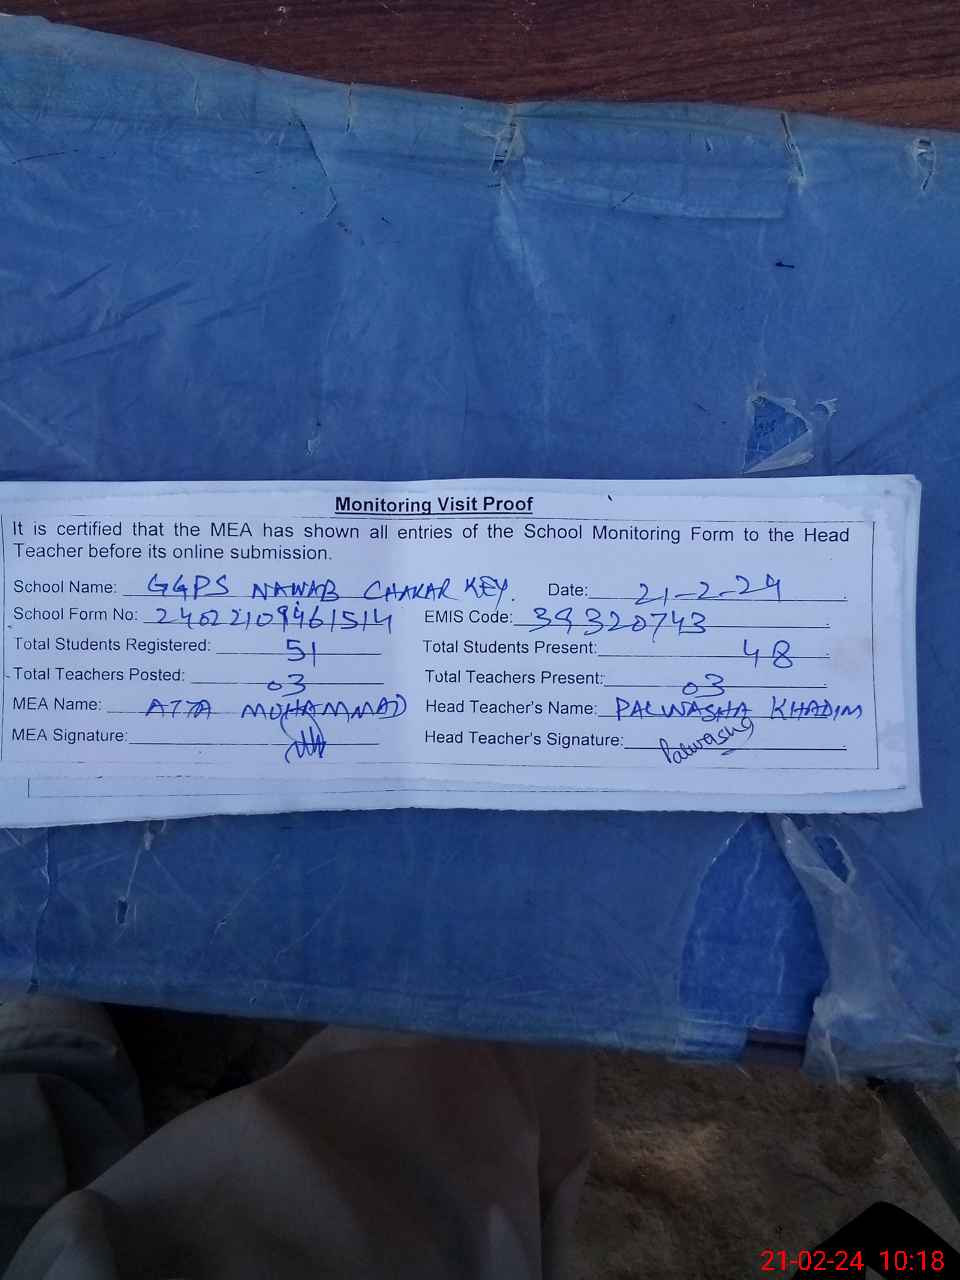 Monitoring Visit Proof
It is certified that the MEA has shown all entries of the School Monitoring Form to the Head
Teacher before its online submission.
School Name: GGPS NAWAB CHAKAR KEY. Date: 21-2-24
School Form No: 24022109461514 EMIS Code: 39320743
Total Students Registered: 51 Total Students Present: 48
Total Teachers Posted: 03 Total Teachers Present: 03
MEA Name: ATTA MUHAMMAD Head Teacher's Name: PALWASHA KHADIM
MEA Signature: Head Teacher's Signature: Palwasha
21-02-24 10:18